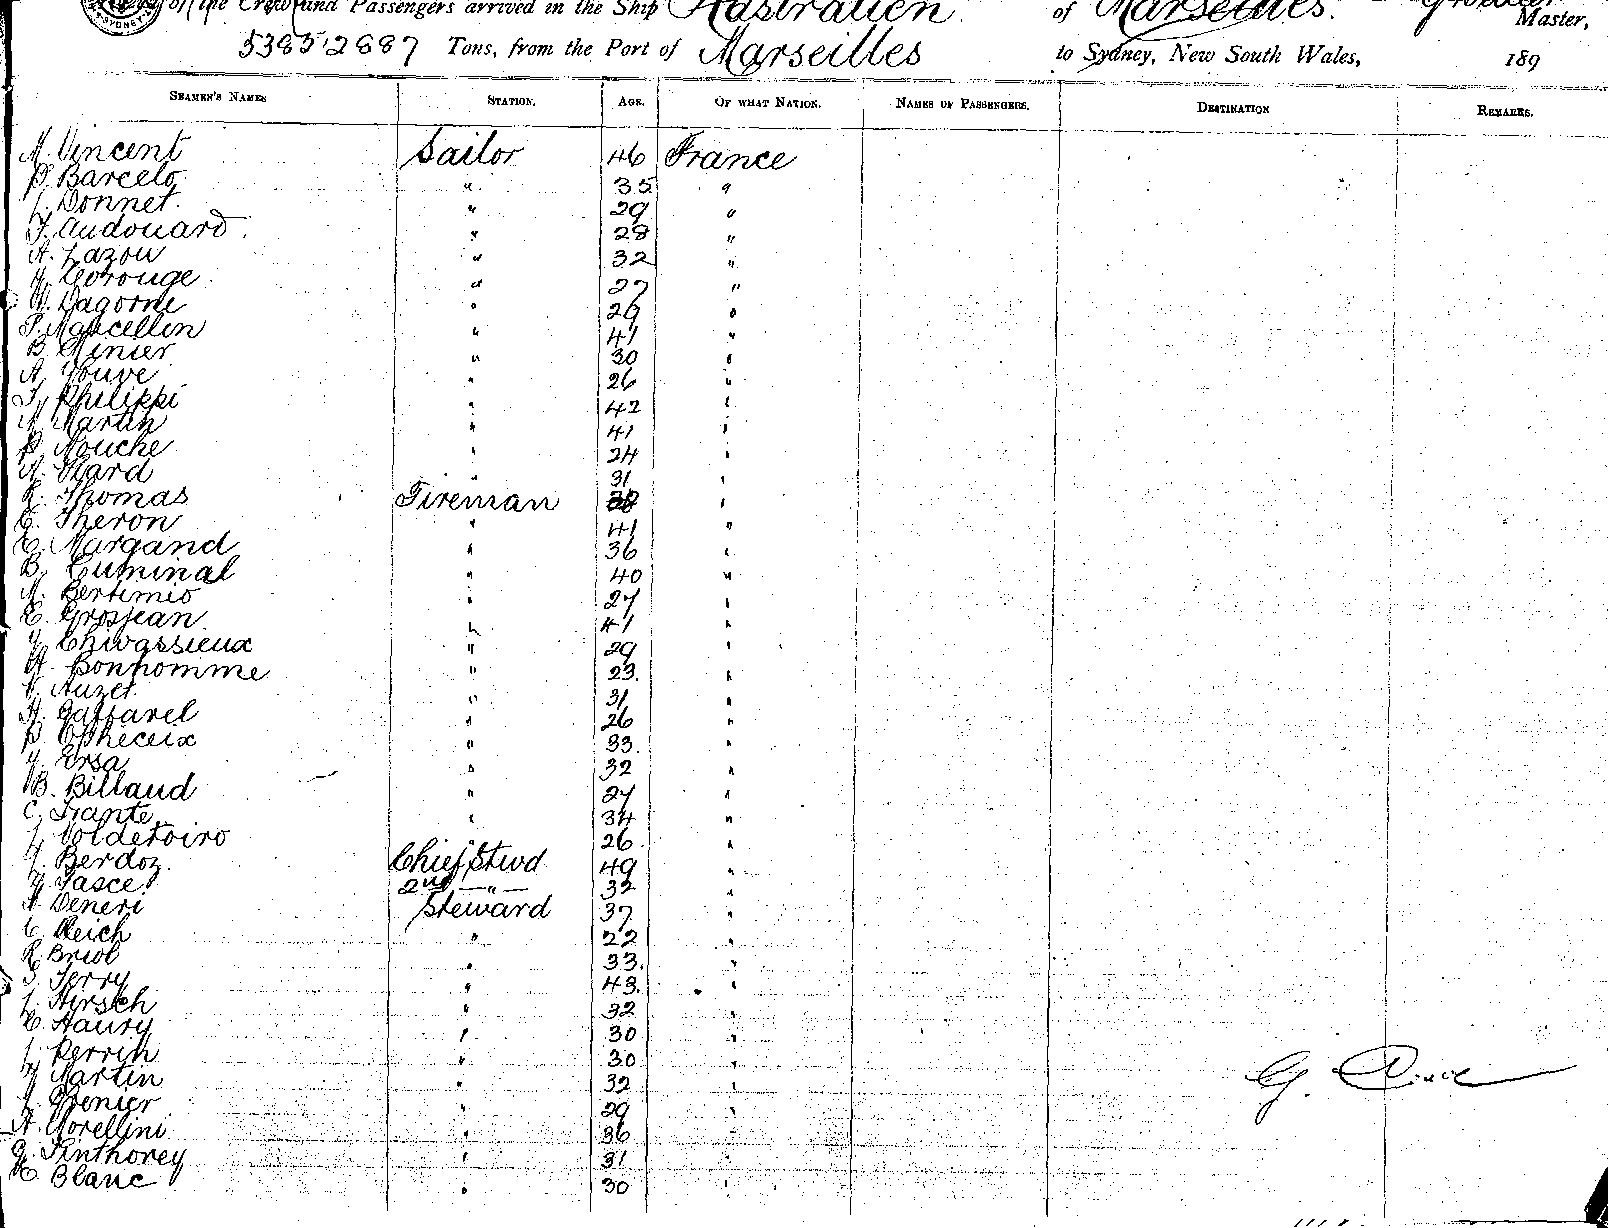 of the Crew and Passengers arrived in the Ship Australien of Marseilles.
Master,
5385 2887 Tons, from the Port of Marseilles to Sydney, New South Wales, 189
SEAMEN'S NAMES STATION. AGE. OF WHAT NATION. NAMES OF PASSENGERS. DESTINATION REMARKS.
Vincent Sailor 46 France
P. Barcelo " 35 "
J. Donnet " 29 "
F. Audouard " 28 "
A. Lazou " 32 "
Corouge " 27 "
Dagorne " 29 "
Marcellin " 41 "
B. Minier " 30 "
A. Jouve " 26 "
Philippi " 42 "
Martin " 41 "
P. Nouche " 24 "
A. Huard " 31 "
Thomas Fireman "
E. Theron " 41 "
E. Margand " 36 "
B. Cuminal " 40 "
Bertimio " 27 "
E. Grosjean " 41 "
Chivassieux " 29 "
Bonhomme " 23 "
Auzet " 31 "
Gaffarel " 26 "
P. " 33 "
Ersa " 32 "
B. Billaud " 27 "
C. Trante " 34 "
J. Voldetoiro " 26 "
Berdoz Chief Stwd 49 "
Pasce 2nd " 32 "
Deneri Steward 37 "
C. Reich " 22 "
Briol " 33 "
Terry " 43 "
J. Hirsch " 32 "
Haury " 30 "
J. Perrin " 30 "
Martin " 32 "
J. Grenier " 29 "
A. Morellini " 36 "
Pinthorey " 31 "
Blanc " 30 "
G.